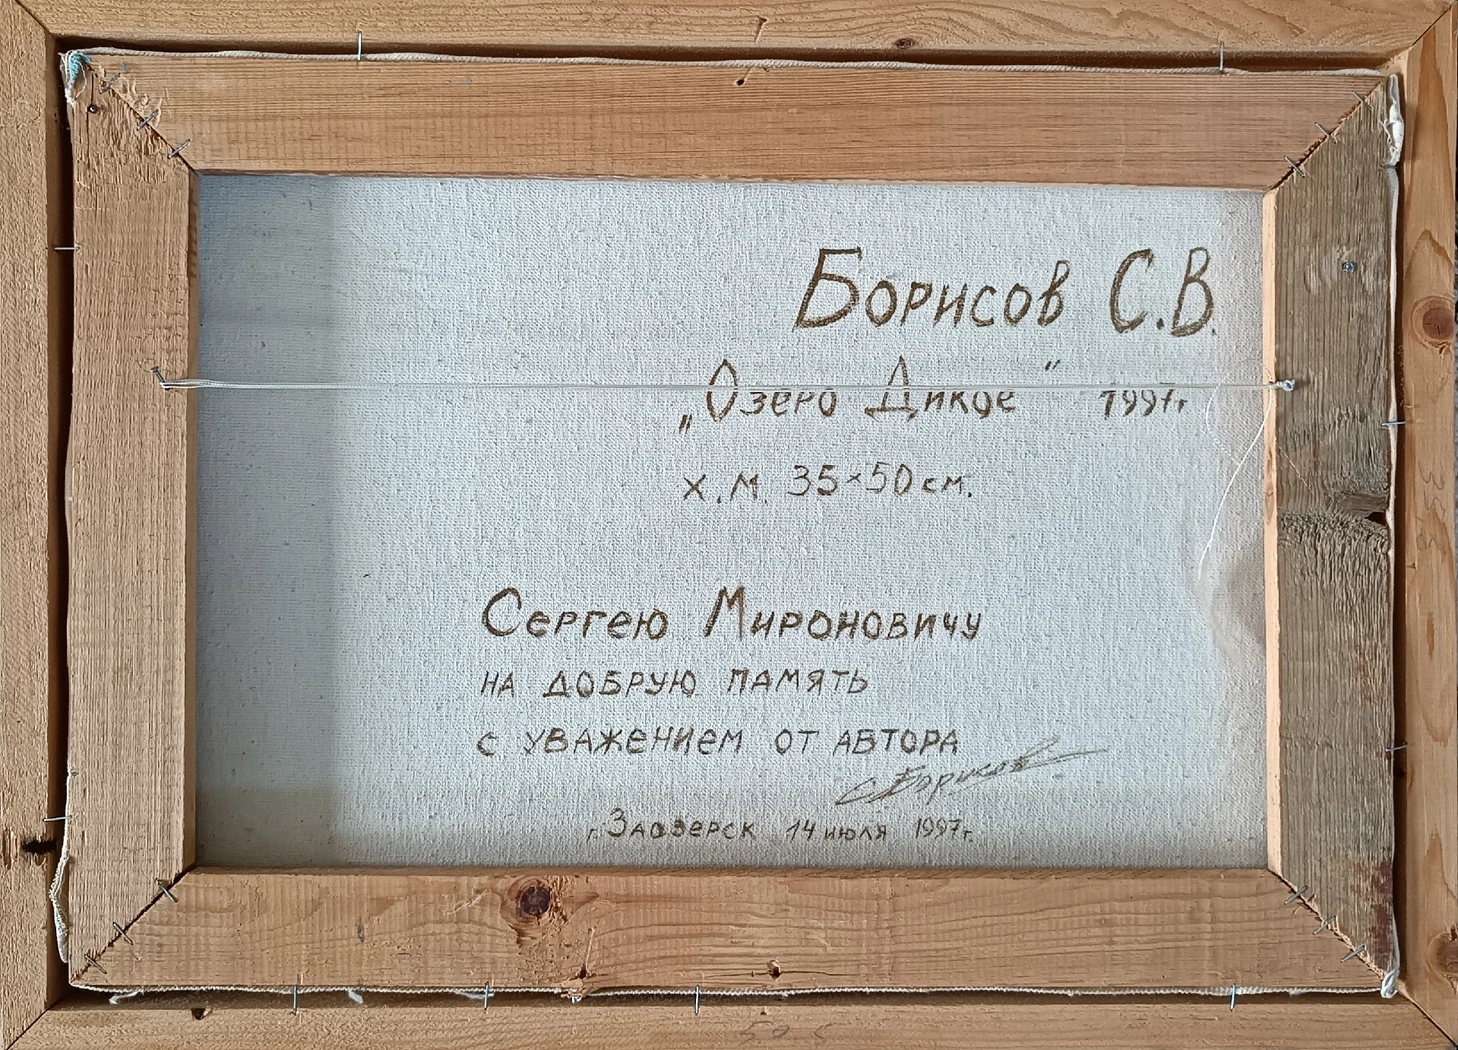 Борисов С.В.
„Озеро Дикое" 1997г
х.м. 35×50см.
Сергею Мироновичу
на добрую память
с уважением от автора
С Борисов
г. Заозерск 14 июля 1997г.